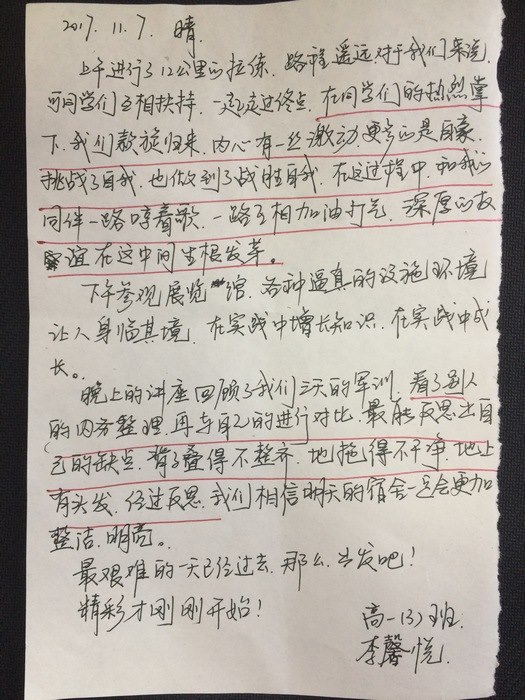 2017. 11. 7. 晴.
上午进行了12公里的拉练. 路程遥远对于我们来说,
可同学们互相扶持. 一起走过终点. 在同学们的热烈掌
下. 我们款旋归来. 内心有一丝激动. 更多的是自豪.
挑战了自我. 也做到了战胜自我. 在这过程中. 和我的
同伴一路哼着歌. 一路互相加油打气. 深厚的友
谊在这中间生根发芽。
下午参观展览馆. 各种逼真的设施环境
让人身临其境. 在实战中增长知识. 在实战中成
长。
晚上的讲座回顾了我们三天的军训. 看了别人
的内务整理. 再与自己的进行对比. 最能反思出自
己的缺点. 背子叠得不整齐. 地拖得不干净. 地上
有头发. 经过反思. 我们相信明天的宿舍一定会更加
整洁. 明亮。
最艰难的一天已经过去. 那么. 出发吧!
精彩才刚刚开始!
高一(3)班.
李馨悦.